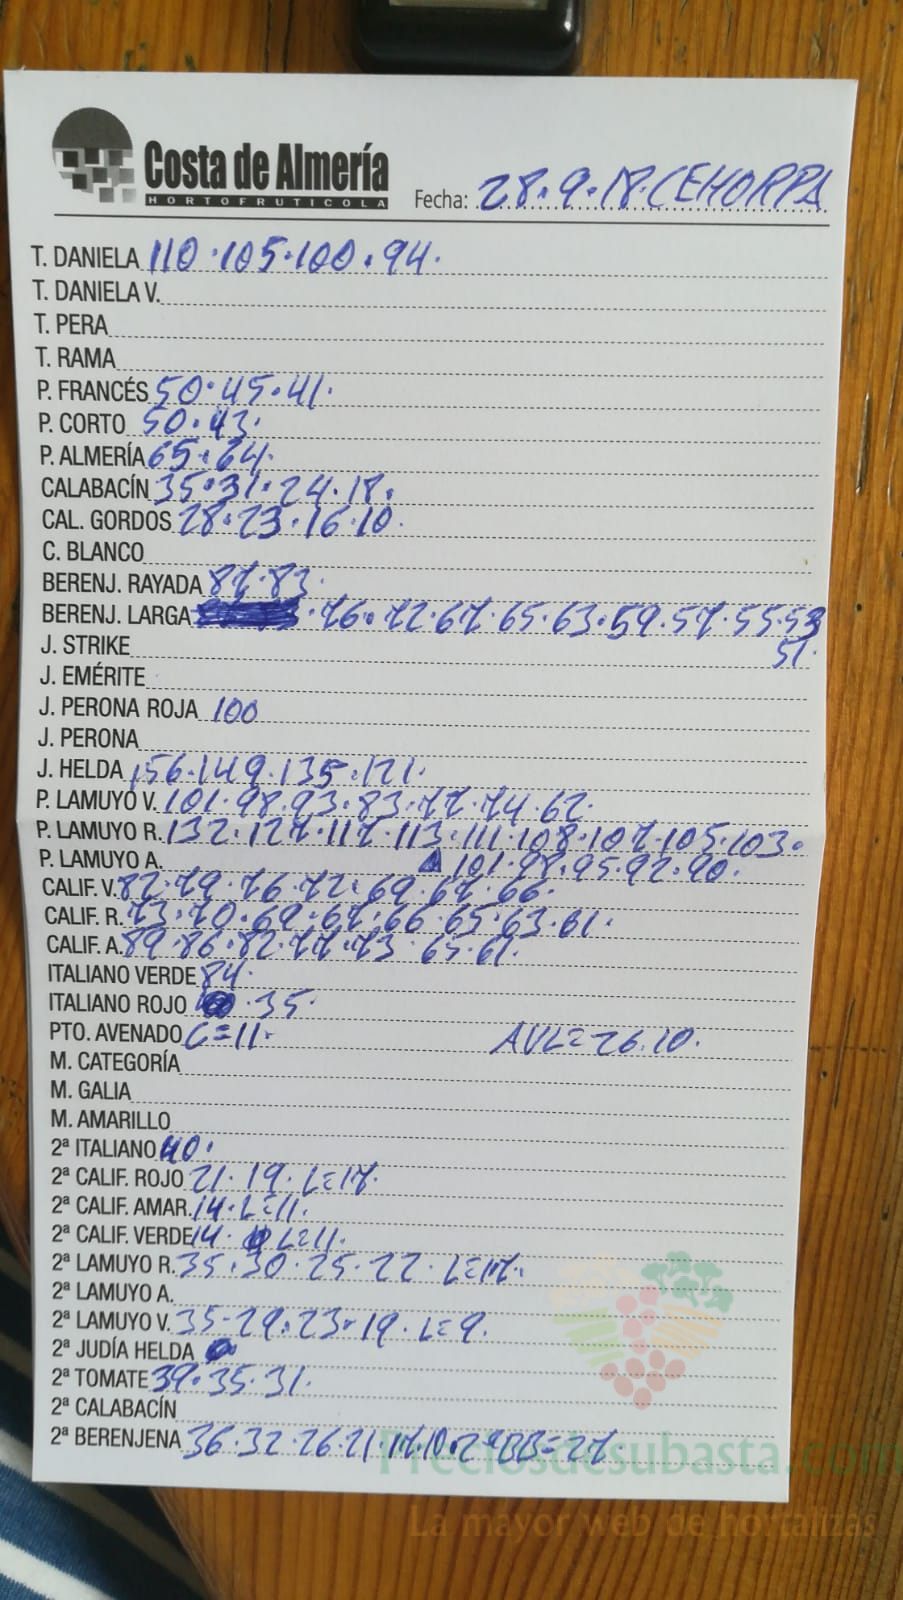 Costa de Almería
HORTOFRUTICOLA
Fecha: 28.9.18. CEHORPA
T. DANIELA 110.105.100.94.
T. DANIELA V.
T. PERA
T. RAMA
P. FRANCÉS 50.45.41.
P. CORTO 50.43.
P. ALMERÍA 65.64.
CALABACÍN 35.31.24.18.
CAL. GORDOS 28.23.16.10.
C. BLANCO
BERENJ. RAYADA 87.83.
BERENJ. LARGA .76.72.67.65.63.59.57.55.53
51.
J. STRIKE
J. EMÉRITE
J. PERONA ROJA 100
J. PERONA
J. HELDA 156.149.135.121.
P. LAMUYO V. 101.98.93.83.77.74.62.
P. LAMUYO R. 132.127.117.113.111.108.107.105.103.
P. LAMUYO A. 101.98.95.92.90.
CALIF. V. 82.79.76.72.69.67.66.
CALIF. R. 73.70.69.67.66.65.63.61.
CALIF. A. 89.86.82.77.73.65.61.
ITALIANO VERDE 84.
ITALIANO ROJO .35.
PTO. AVENADO C=11. AVL=26.10.
M. CATEGORÍA
M. GALIA
M. AMARILLO
2ª ITALIANO 40.
2ª CALIF. ROJO 21.19.L=17.
2ª CALIF. AMAR. 14.L=11.
2ª CALIF. VERDE 14. L=11.
2ª LAMUYO R. 35.30.25.22.L=17.
2ª LAMUYO A.
2ª LAMUYO V. 35-29.23-19.L=9.
2ª JUDÍA HELDA
2ª TOMATE 39.35.31.
2ª CALABACÍN
2ª BERENJENA 36.32.26.21.17.10.2ªBB=27
Preciosdesubasta.com
La mayor web de hortalizas